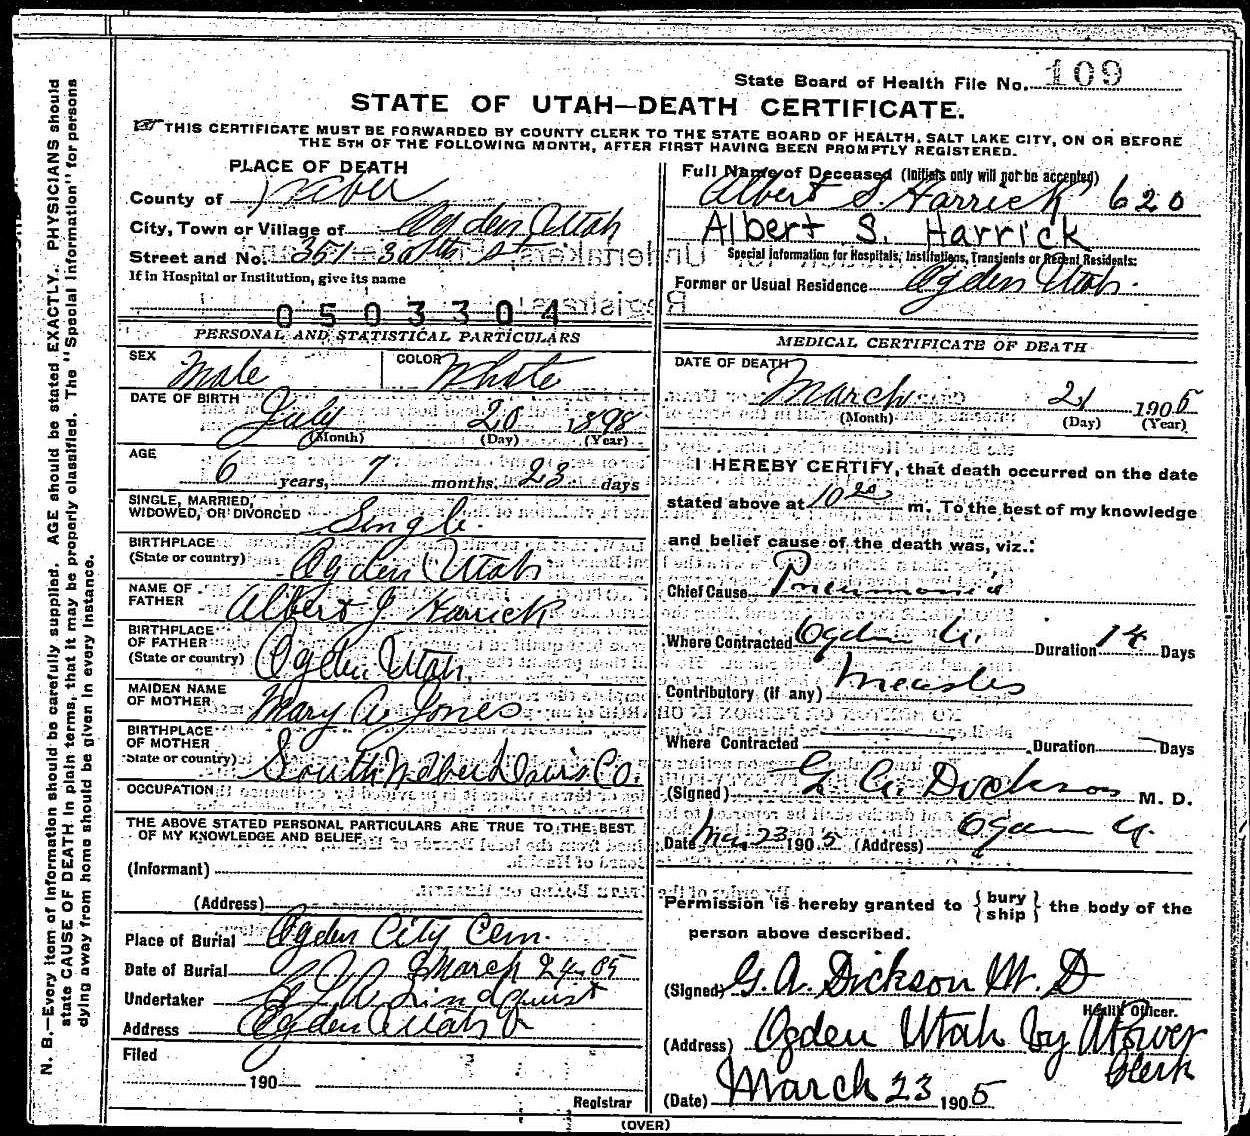 State Board of Health File No. 109
STATE OF UTAH—DEATH CERTIFICATE.
THIS CERTIFICATE MUST BE FORWARDED BY COUNTY CLERK TO THE STATE BOARD OF HEALTH, SALT LAKE CITY, ON OR BEFORE
THE 5TH OF THE FOLLOWING MONTH, AFTER FIRST HAVING BEEN PROMPTLY REGISTERED.
PLACE OF DEATH
County of Weber
City, Town or Village of Ogden Utah
Street and No. 351 30th St
If in Hospital or Institution, give its name
0503304
PERSONAL AND STATISTICAL PARTICULARS
SEX Male COLOR White
DATE OF BIRTH July 20 1898
(Month) (Day) (Year)
AGE 6 years, 7 months, 23 days
SINGLE, MARRIED,
WIDOWED, OR DIVORCED Single.
BIRTHPLACE
(State or country) Ogden Utah
NAME OF
FATHER Albert J. Harrick
BIRTHPLACE
OF FATHER
(State or country) Ogden Utah.
MAIDEN NAME
OF MOTHER Mary A. Jones
BIRTHPLACE
OF MOTHER
(State or country) South Weber Davis Co.
OCCUPATION
THE ABOVE STATED PERSONAL PARTICULARS ARE TRUE TO THE BEST
OF MY KNOWLEDGE AND BELIEF
(Informant)
(Address)
Place of Burial Ogden City Cem.
Date of Burial March 24-05
Undertaker Lindquist
Address Ogden Utah
Filed
190
Registrar
Full Name of Deceased (Initials only will not be accepted)
Albert S. Harrick 620
Albert S. Harrick
Special Information for Hospitals, Institutions, Transients or Recent Residents:
Former or Usual Residence Ogden Utah.
MEDICAL CERTIFICATE OF DEATH
DATE OF DEATH
March 21 1905
(Month) (Day) (Year)
I HEREBY CERTIFY, that death occurred on the date
stated above at 10 20 m. To the best of my knowledge
and belief cause of the death was, viz.:
Chief Cause Pneumonia
Where Contracted Ogden U. Duration 14 Days
Contributory (if any) Measles
Where Contracted Duration Days
(Signed) G. A. Dickson M. D.
Date Mar 23 1905 (Address) Ogden U.
Permission is hereby granted to { bury ship } the body of the
person above described.
(Signed) G. A. Dickson M. D
Health Officer.
(Address) Ogden Utah by A Power
Clerk
(Date) March 23 1905
(OVER)
N. B.—Every item of information should be carefully supplied. AGE should be stated EXACTLY. PHYSICIANS should
state CAUSE OF DEATH in plain terms, that it may be properly classified. The "Special Information" for persons
dying away from home should be given in every instance.